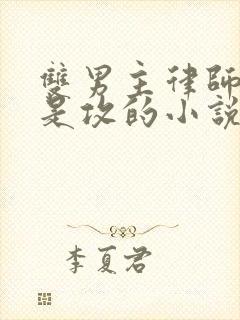 雙男主律師
是攻的小說
李夏君